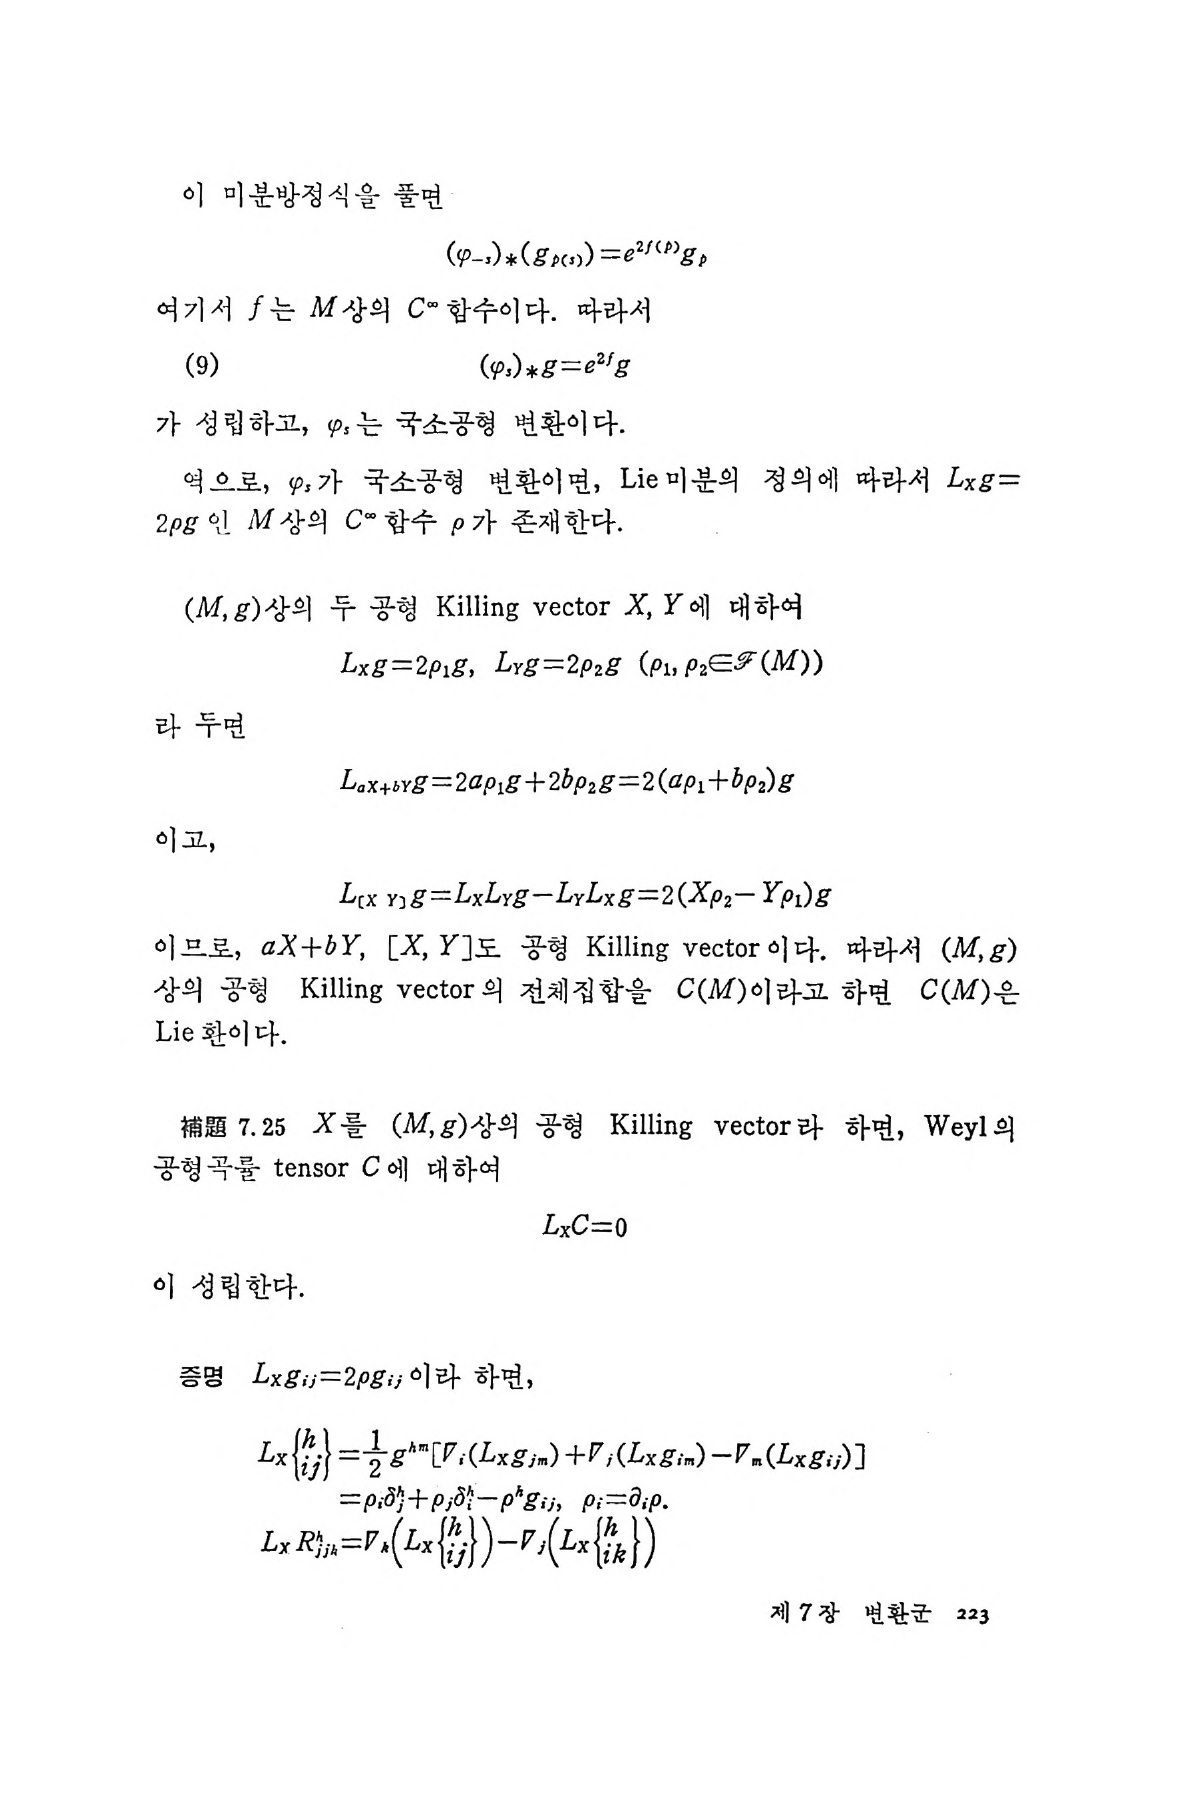 이 미분방정식을 풀면
(φ₋ₛ)*(g_{p(s)})=e^{2f(p)}g_p
여기서 f는 M상의 C^∞ 함수이다. 따라서
(9) (φₛ)*g=e^{2f}g
가 성립하고, φₛ는 국소공형 변환이다.
역으로, φₛ가 국소공형 변환이면, Lie미분의 정의에 따라서 L_Xg=
2ρg인 M상의 C^∞함수 ρ가 존재한다.
(M, g)상의 두 공형 Killing vector X, Y에 대하여
L_Xg=2ρ₁g, L_Yg=2ρ₂g (ρ₁, ρ₂∈ℱ(M))
라 두면
L_{aX+bY}g=2aρ₁g+2bρ₂g=2(aρ₁+bρ₂)g
이고,
L_{[X Y]}g=L_XL_Yg−L_YL_Xg=2(Xρ₂−Yρ₁)g
이므로, aX+bY, [X, Y]도 공형 Killing vector이다. 따라서 (M, g)
상의 공형 Killing vector의 전체집합을 C(M)이라고 하면 C(M)은
Lie환이다.
補題 7.25 X를 (M, g)상의 공형 Killing vector라 하면, Weyl의
공형곡률 tensor C에 대하여
L_XC=0
이 성립한다.
증명 L_Xg_{ij}=2ρg_{ij}이라 하면,
L_X{h ij}=1/2 g^{hm}[∇_i(L_Xg_{jm})+∇_j(L_Xg_{im})−∇_m(L_Xg_{ij})]
=ρ_iδ^h_j+ρ_jδ^h_i−ρ^hg_{ij}, ρ_i=∂_iρ.
L_XR^h_{jjk}=∇_k(L_X{h ij})−∇_j(L_X{h ik})
제 7 장 변환군 223